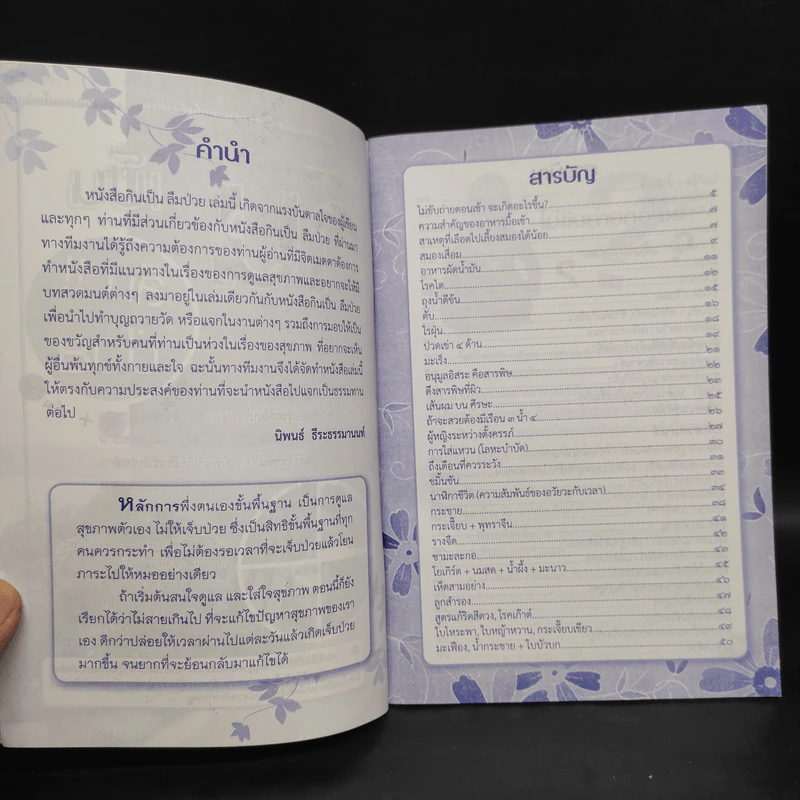 คำนำ
หนังสือกินเป็น ลืมป่วย เล่มนี้ เกิดจากแรงบันดาลใจของผู้เขียน
และทุกๆ ท่านที่มีส่วนเกี่ยวข้องกับหนังสือกินเป็น ลืมป่วย ที่ผ่านมา
ทางทีมงานได้รู้ถึงความต้องการของท่านผู้อ่านที่มีจิตเมตตาต้องการ
ทำหนังสือที่มีแนวทางในเรื่องของการดูแลสุขภาพและอยากจะให้มี
บทสวดมนต์ต่างๆ ลงมาอยู่ในเล่มเดียวกันกับหนังสือกินเป็น ลืมป่วย
เพื่อนำไปทำบุญถวายวัด หรือแจกในงานต่างๆ รวมถึงการมอบให้เป็น
ของขวัญสำหรับคนที่ท่านเป็นห่วงในเรื่องของสุขภาพ ที่อยากจะเห็น
ผู้อื่นพ้นทุกข์ทั้งกายและใจ ฉะนั้นทางทีมงานจึงได้จัดทำหนังสือเล่มนี้
ให้ตรงกับความประสงค์ของท่านที่จะนำหนังสือไปแจกเป็นธรรมทาน
ต่อไป
นิพนธ์ ธีระธรรมานนท์
หลักการพึ่งตนเองขั้นพื้นฐาน เป็นการดูแล
สุขภาพตัวเอง ไม่ให้เจ็บป่วย ซึ่งเป็นสิทธิขั้นพื้นฐานที่ทุก
คนควรกระทำ เพื่อไม่ต้องรอเวลาที่จะเจ็บป่วยแล้วโยน
ภาระไปให้หมออย่างเดียว
ถ้าเริ่มต้นสนใจดูแล และใส่ใจสุขภาพ ตอนนี้ก็ยัง
เรียกได้ว่าไม่สายเกินไป ที่จะแก้ไขปัญหาสุขภาพของเรา
เอง ดีกว่าปล่อยให้เวลาผ่านไปแต่ละวันแล้วเกิดเจ็บป่วย
มากขึ้น จนยากที่จะย้อนกลับมาแก้ไขได้
สารบัญ
ไม่ขับถ่ายตอนเช้า จะเกิดอะไรขึ้น?....๕
ความสำคัญของอาหารมื้อเช้า....๗
สาเหตุที่เลือดไปเลี้ยงสมองได้น้อย....๗
สมองเสื่อม....๙
อาหารผัดน้ำมัน....๑๑
โรคไต....๑๒
ถุงน้ำดีข้น....๑๕
ตับ....๑๖
ไรฝุ่น....๑๘
ปวดเข่า ๔ ด้าน....๑๙
มะเร็ง....๒๑
อนุมูลอิสระ คือสารพิษ....๒๒
ดึงสารพิษที่ผิว....๒๓
เส้นผม บน ศีรษะ....๒๕
ถ้าจะสวยต้องมีเรือน ๓ น้ำ ๔....๒๖
ผู้หญิงระหว่างตั้งครรภ์....๒๗
การใส่แหวน (โลหะบำบัด)....๓๐
ถึงเดือนที่ควรระวัง....๓๑
ขมิ้นชัน....๓๓
นาฬิกาชีวิต (ความสัมพันธ์ของอวัยวะกับเวลา)....๓๔
กระชาย....๓๘
กระเจี๊ยบ + พุทราจีน....๔๑
รางจืด....๔๒
ชามะละกอ....๔๓
โยเกิร์ต + นมสด + น้ำผึ้ง + มะนาว....๔๕
เห็ดสามอย่าง....๔๖
ลูกสำรอง....๔๗
สูตรแก้ริดสีดวง, โรคเก๊าต์....๔๘
ใบโหระพา, ใบหญ้าหวาน, กระเจี๊ยบเขียว....๔๙
มะเฟือง, น้ำกระชาย + ใบบัวบก....๕๐